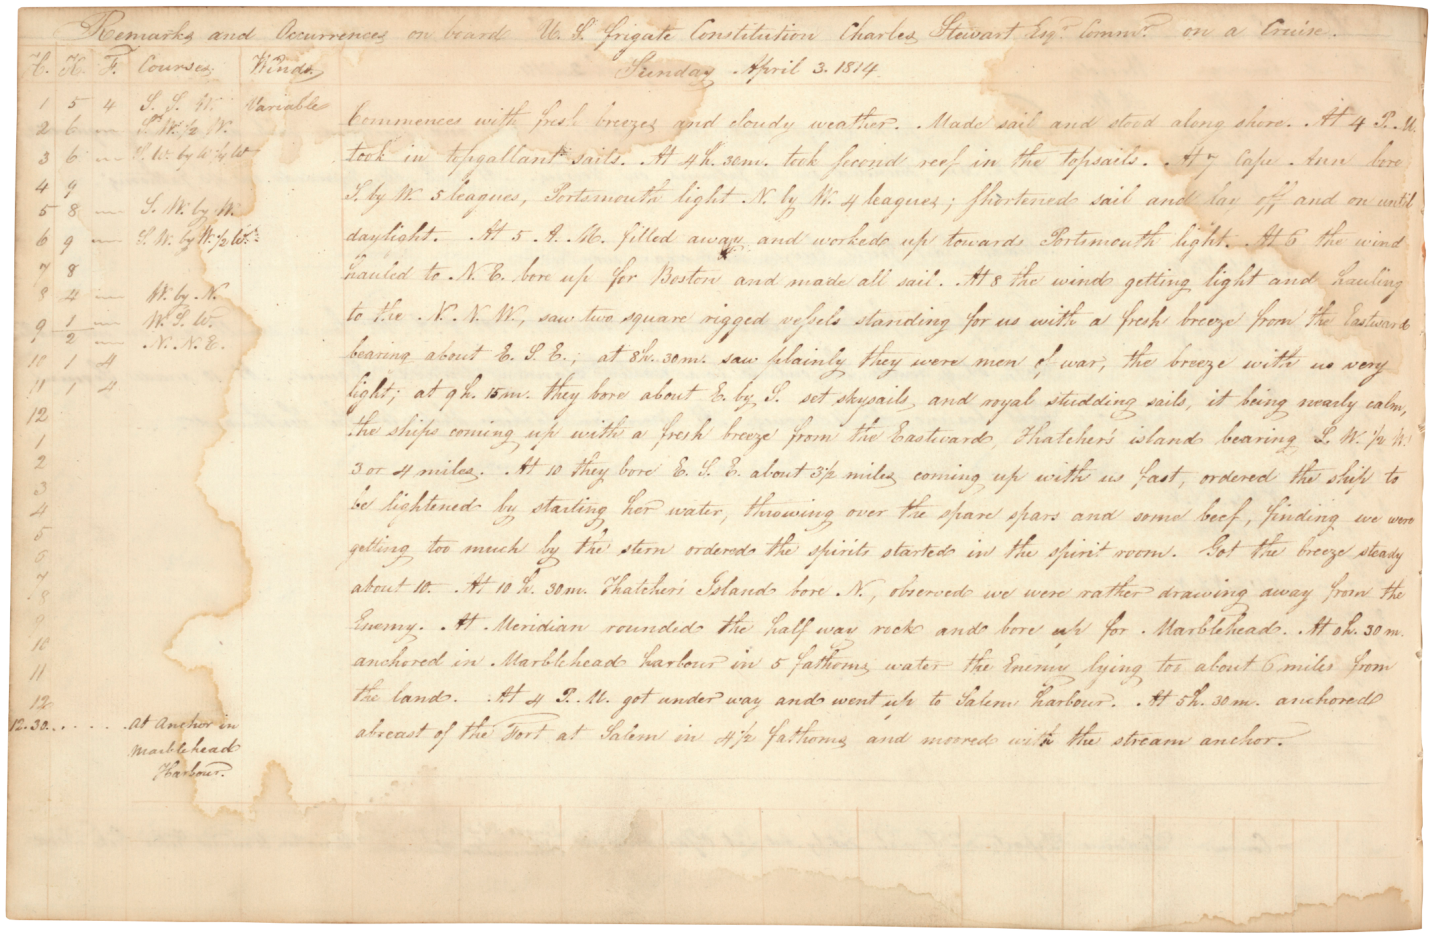 Remarks and Occurrences on board U. S. frigate Constitution Charles Stewart Esqr. Commr. on a Cruise.
H. K. F. Courses Winds Sunday April 3. 1814.
1 5 4 S. S. W. Variable
2 6 " S. W. 1/2 W.
3 6 " S. W. by W 1/2 W
4 9
5 8 " S. W. by W.
6 9 " S. W. by W. 1/2 W.
7 8
8 4 " W. by N.
9 1 " W. S. W.
9 2 " N. N. E.
10 1 4
11 1 4
12
1
2
3
4
5
6
7
8
9
10
11
12
12.30. . . . . . at Anchor in
Marblehead
Harbour.
Commences with fresh breezes and cloudy weather. Made sail and stood along shore. At 4 P. M.
took in topgallant sails. At 4 h. 30 m. took second reef in the topsails. At 7 Cape Ann bore
S. by W. 5 leagues, Portsmouth light N. by W. 4 leagues; shortened sail and lay off and on until
daylight. At 5 A. M. filled away and worked up towards Portsmouth light. At 6 the wind
hauled to N. E. bore up for Boston and made all sail. At 8 the wind getting light and hauling
to the N. N. W., saw two square rigged vessels standing for us with a fresh breeze from the Eastward
bearing about E. S. E.; at 8 h. 30 m. saw plainly they were men of war, the breeze with us very
light; at 9 h. 15 m. they bore about E. by S. set skysails and royal studding sails, it being nearly calm,
the ships coming up with a fresh breeze from the Eastward, Thatcher's island bearing S. W. 1/2 W.
3 or 4 miles. At 10 they bore E. S. E. about 3 1/2 miles coming up with us fast, ordered the ship to
be lightened by starting her water, throwing over the spare spars and some beef, finding we were
getting too much by the stern ordered the spirits started in the spirit room. Got the breeze steady
about 10. At 10 h. 30 m. Thatcher's Island bore N., observed we were rather drawing away from the
Enemy. At Meridian rounded the half way rock and bore up for Marblehead. At 0 h. 30 m.
anchored in Marblehead harbour in 5 fathoms water the Enemy lying too about 6 miles from
the land. At 4 P. M. got under way and went up to Salem harbour. At 5 h. 30 m. anchored
abreast of the Fort at Salem in 4 1/2 fathoms and moored with the stream anchor.